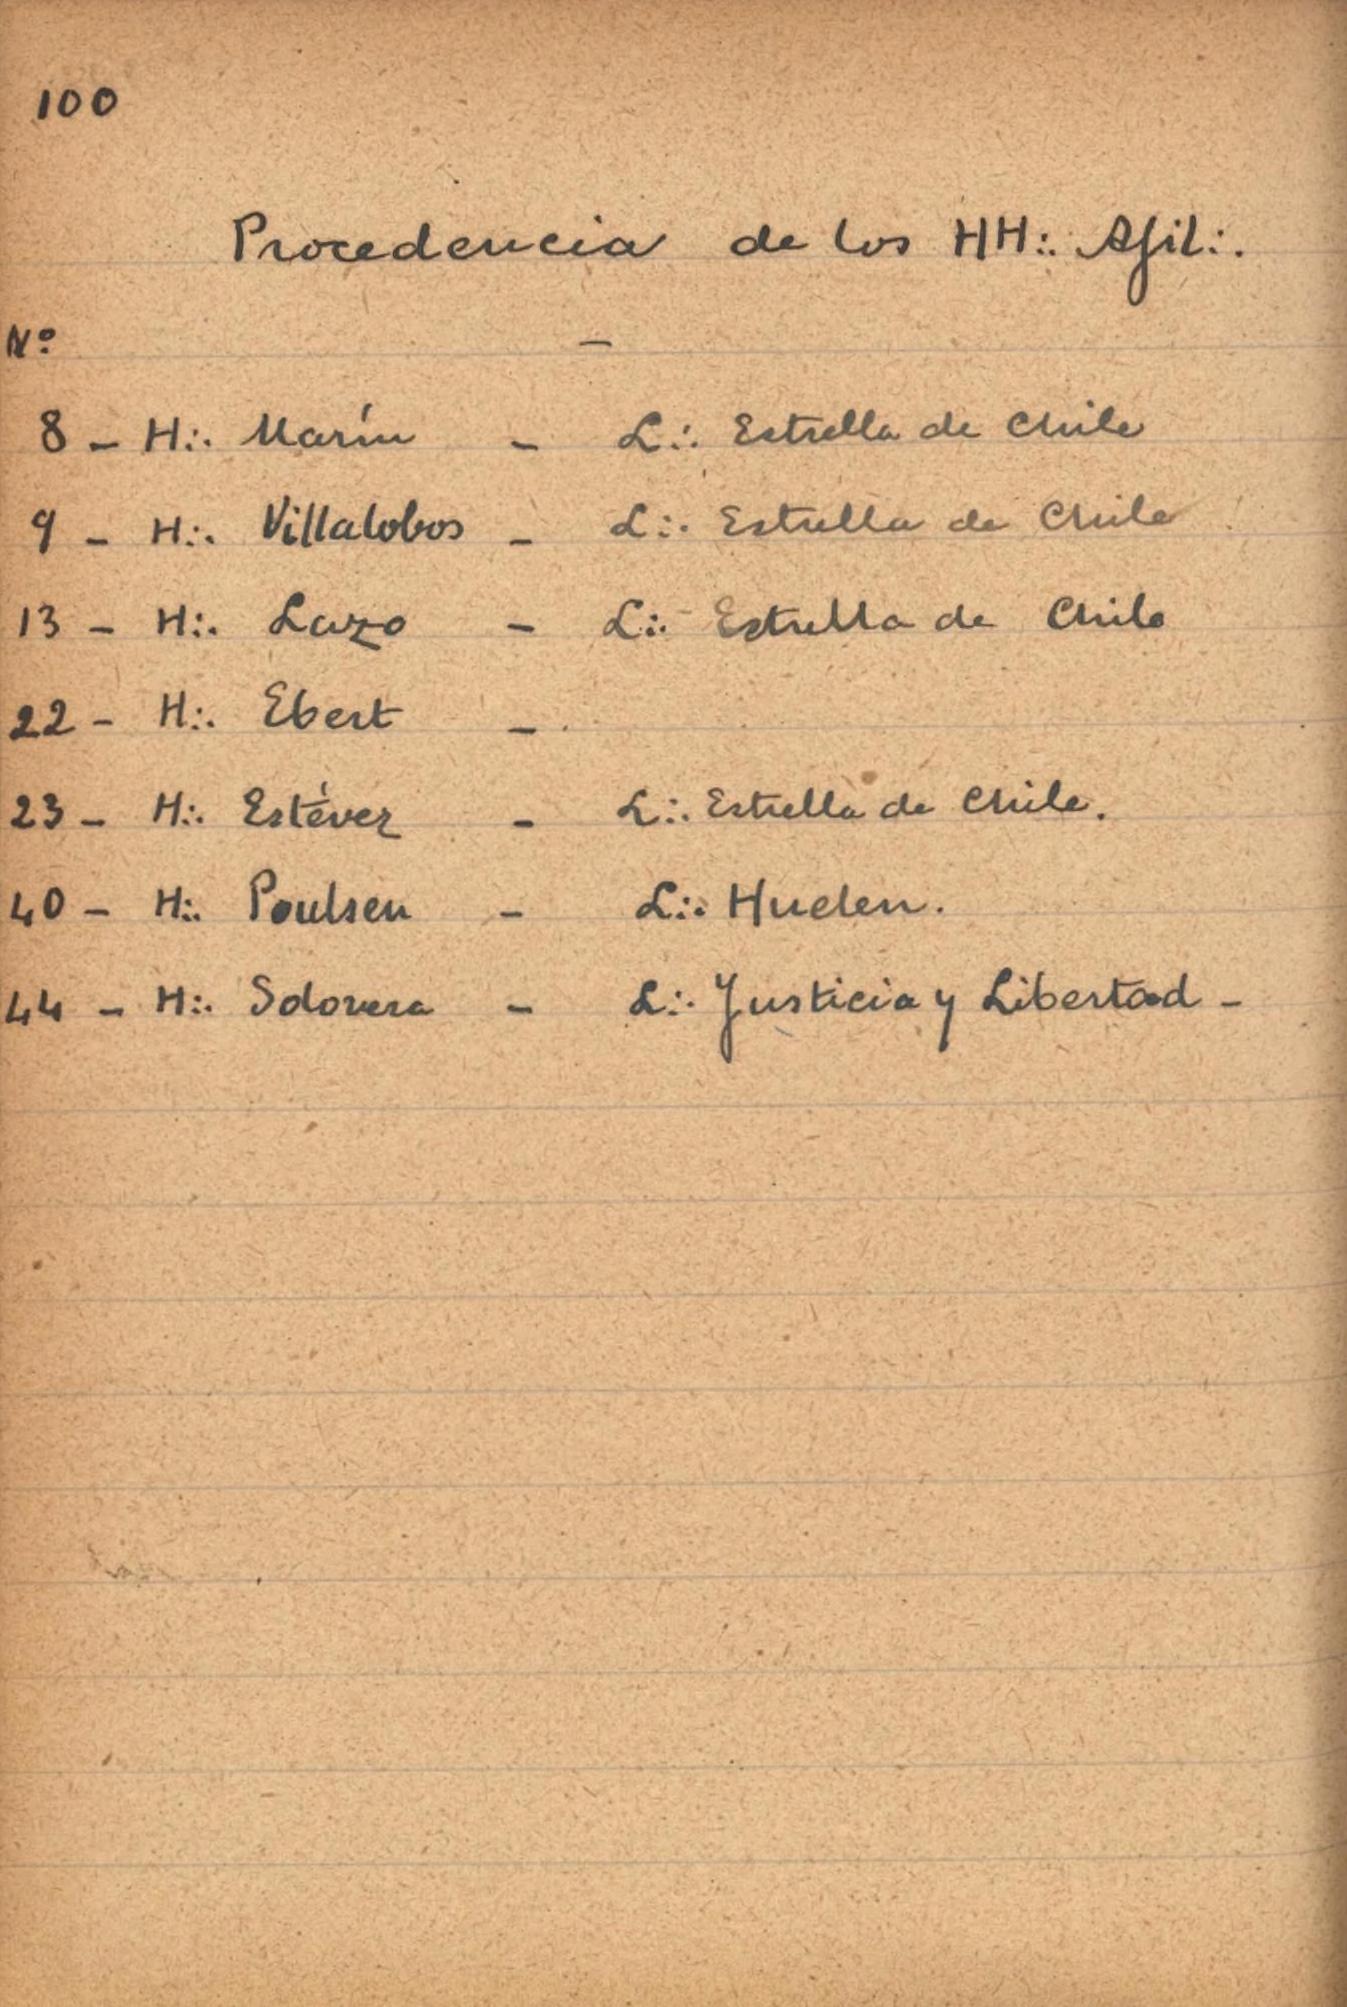 100
Procedencia de los HH∴ Afil∴
Nº —
8 - H∴ Marín - L∴ Estrella de Chile
9 - H∴ Villalobos - L∴ Estrella de Chile
13 - H∴ Lazo - L∴ Estrella de Chile
22 - H∴ Ebert -
23 - H∴ Estévez - L∴ Estrella de Chile.
40 - H∴ Poulsen - L∴ Huelen.
44 - H∴ Solovera - L∴ Justicia y Libertad -